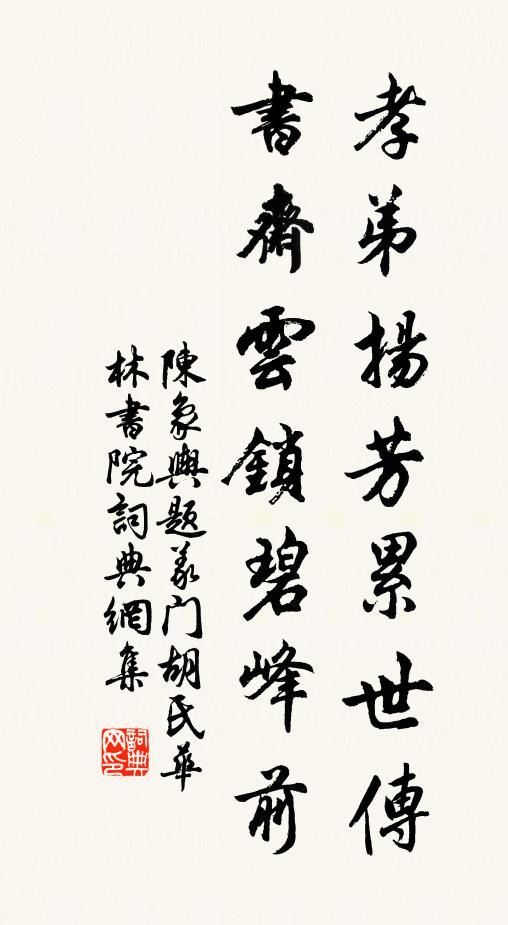 孝弟揚芳累世傳
書齋雲鎖碧峰前
陳象輿題义门胡氏華
林書院詞典網集
詞典网印